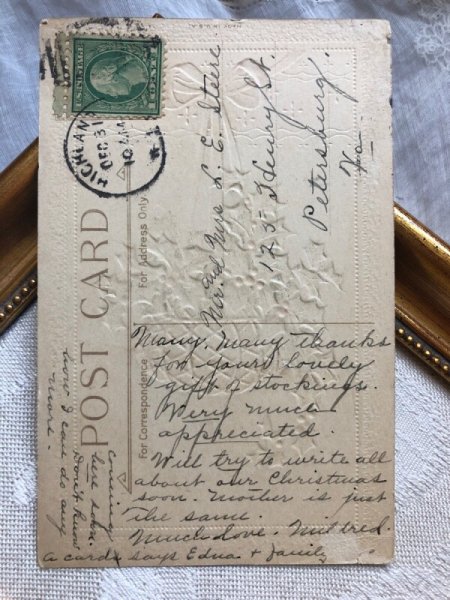 POST CARD
For Correspondence
For Address Only
U.S. POSTAGE
1 CENT 1
HIGHLAND
DEC 31
10 AM
Mr. and Mrs L. E. Steere
125 Henry St.
Petersburg.
Va
Many, many thanks
for your lovely
gift of stockings.
Very much
appreciated.
Will try to write all
about our Christmas
soon. Mother is just
the same.
Much love. Mildred
A card says Edna + family
coming
here soon.
Don't know
how I can do any
more.